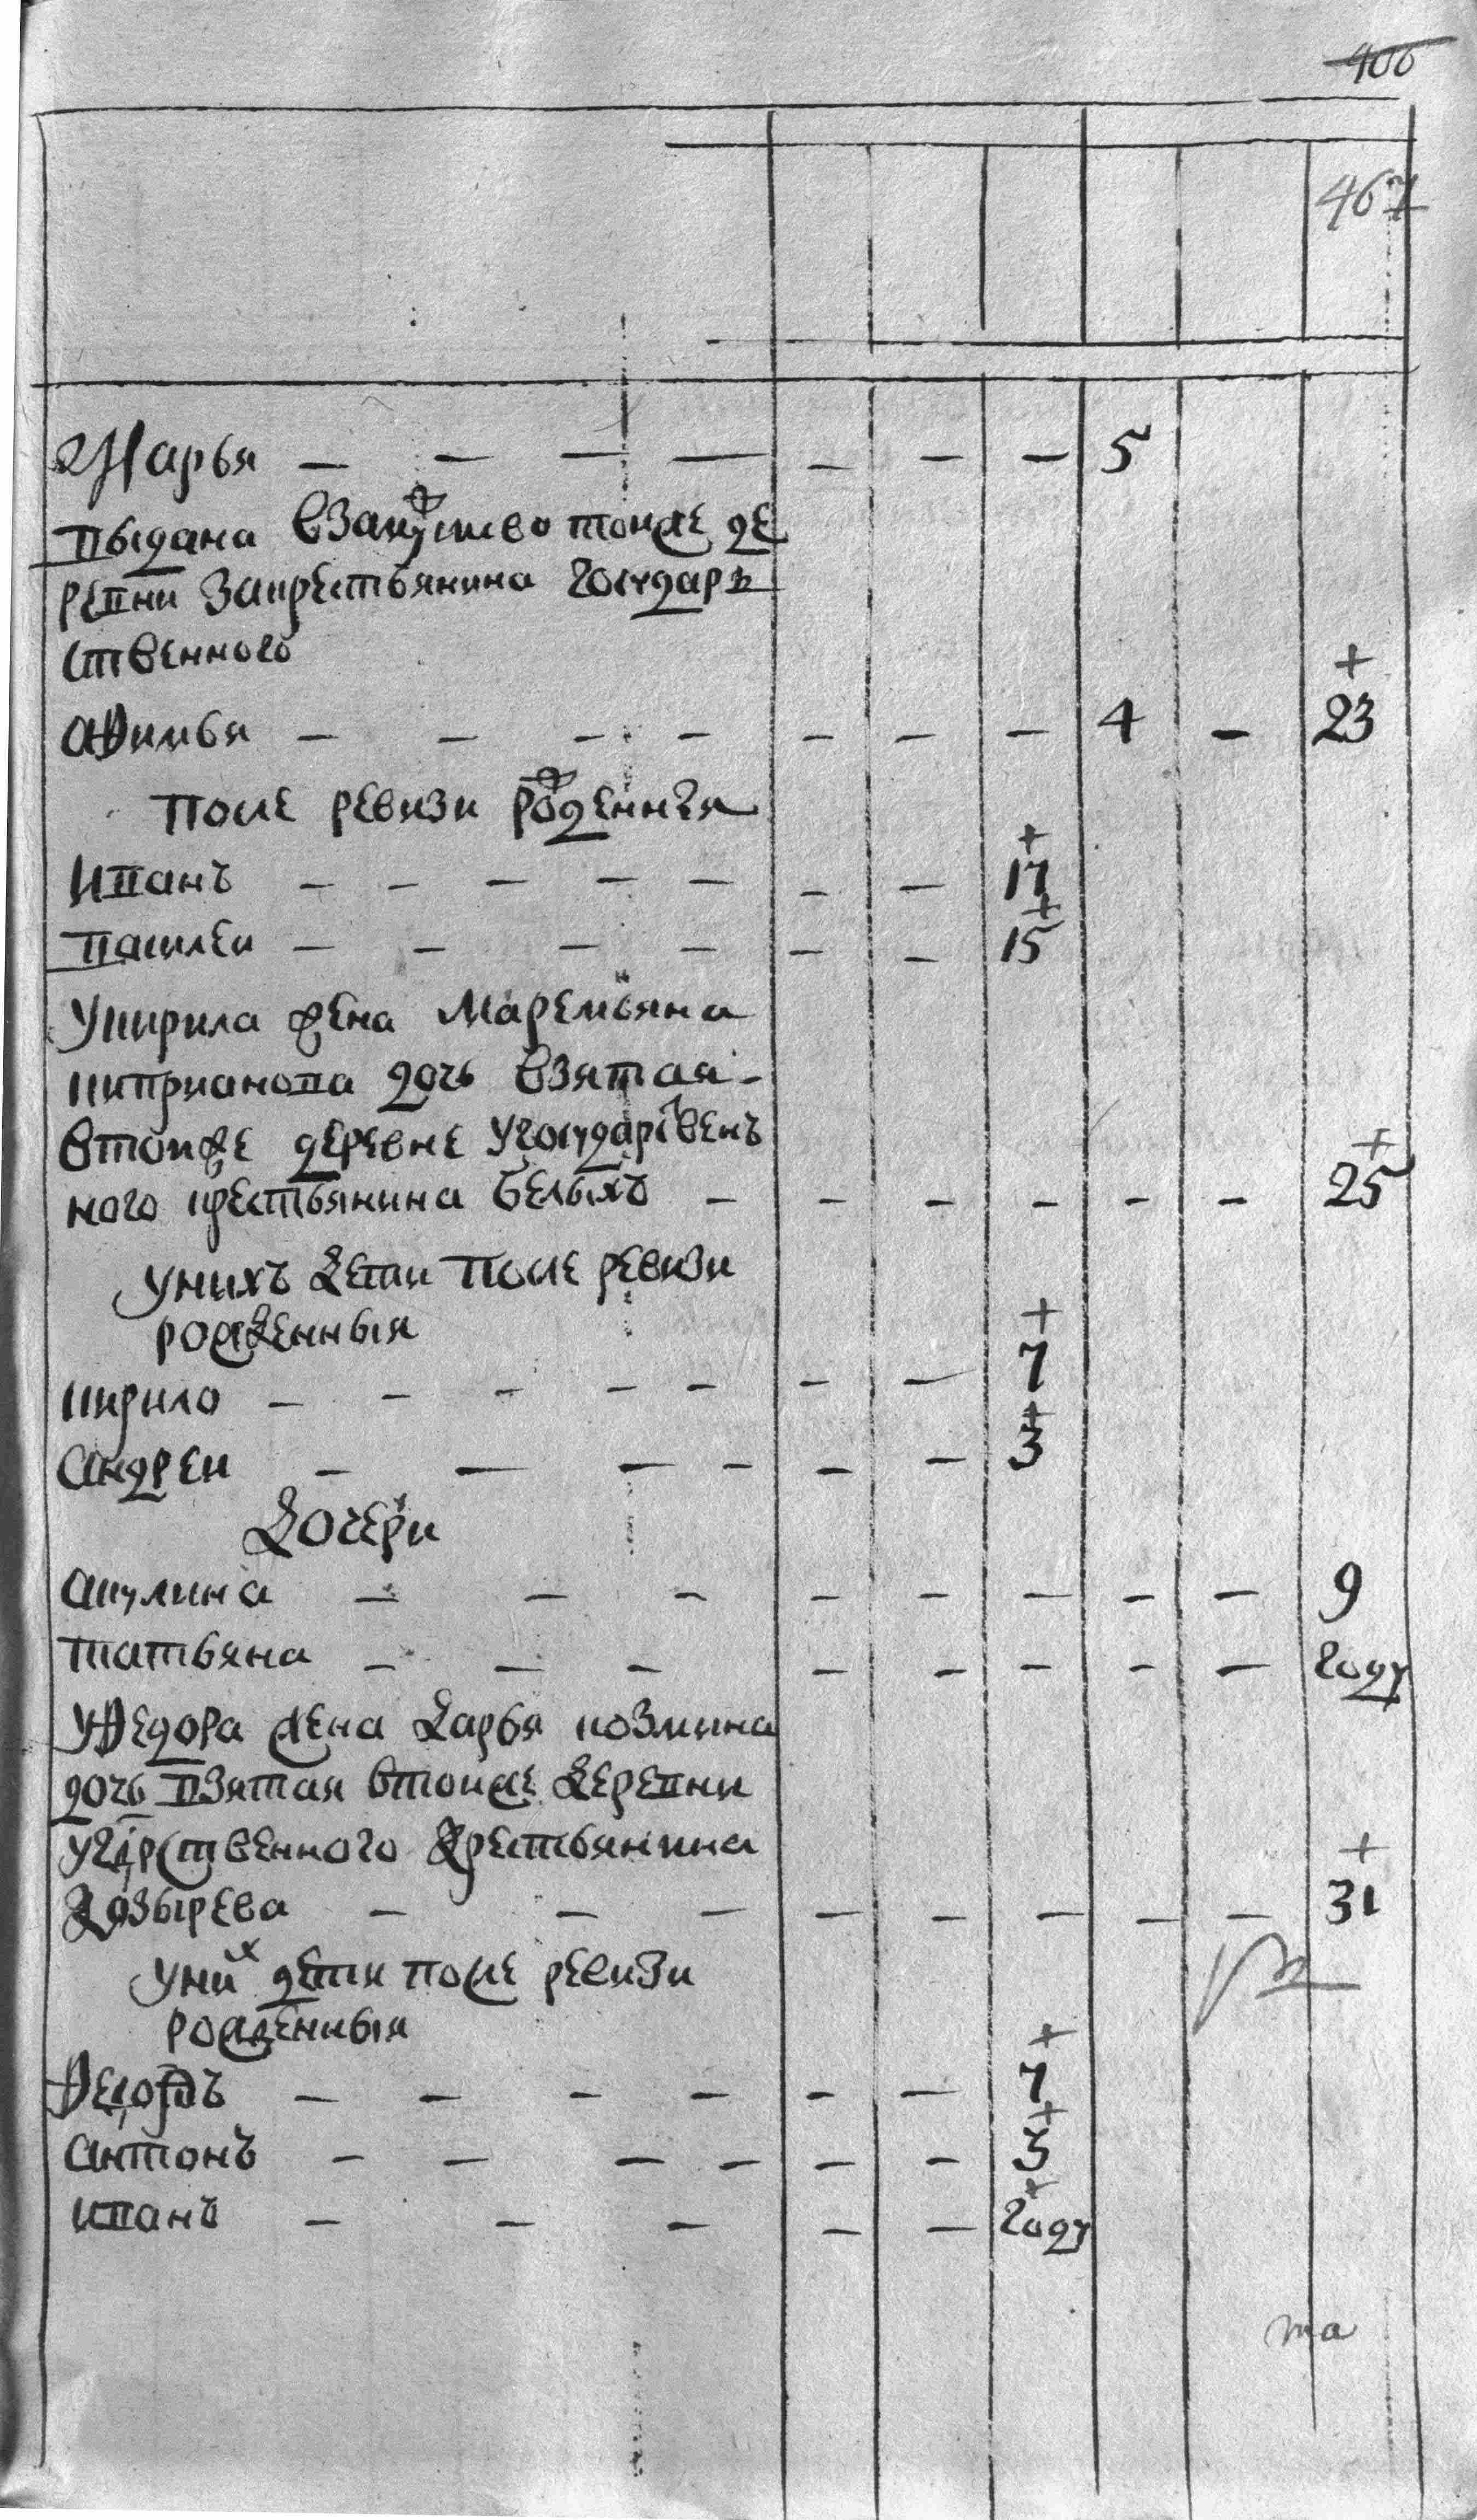 406
467
Марья — — — — — — — 5
выдана взамужство тоиже де
ревни закрестьянина государ
ственного
+
Афимья — — — — — — — 4 — 23
после ревизи рожденныя
+
Иванъ — — — — — — — 17
+
василеи — — — — — — 15
Укирила жена Маремьяна
киприанова дочь взятая
втоиже деревне угосударственъ
+
ного крестьянина белыхъ — — — — — — 25
унихъ дети после ревизи
рожденныя
+
кирило — — — — — — — 7
+
андреи — — — — — — 3
Дочери
акулина — — — — — — — — 9
татьяна — — — — — — — — году
Уфедора жена Дарья козмина
дочь взятая втоиже деревни
угдрственного крестьянина
+
Козырева — — — — — — — — 31
уних дети после ревизи
рожденныя
+
Федоръ — — — — — — 7
+
антонъ — — — — — — 3
+
иванъ — — — — — году
та